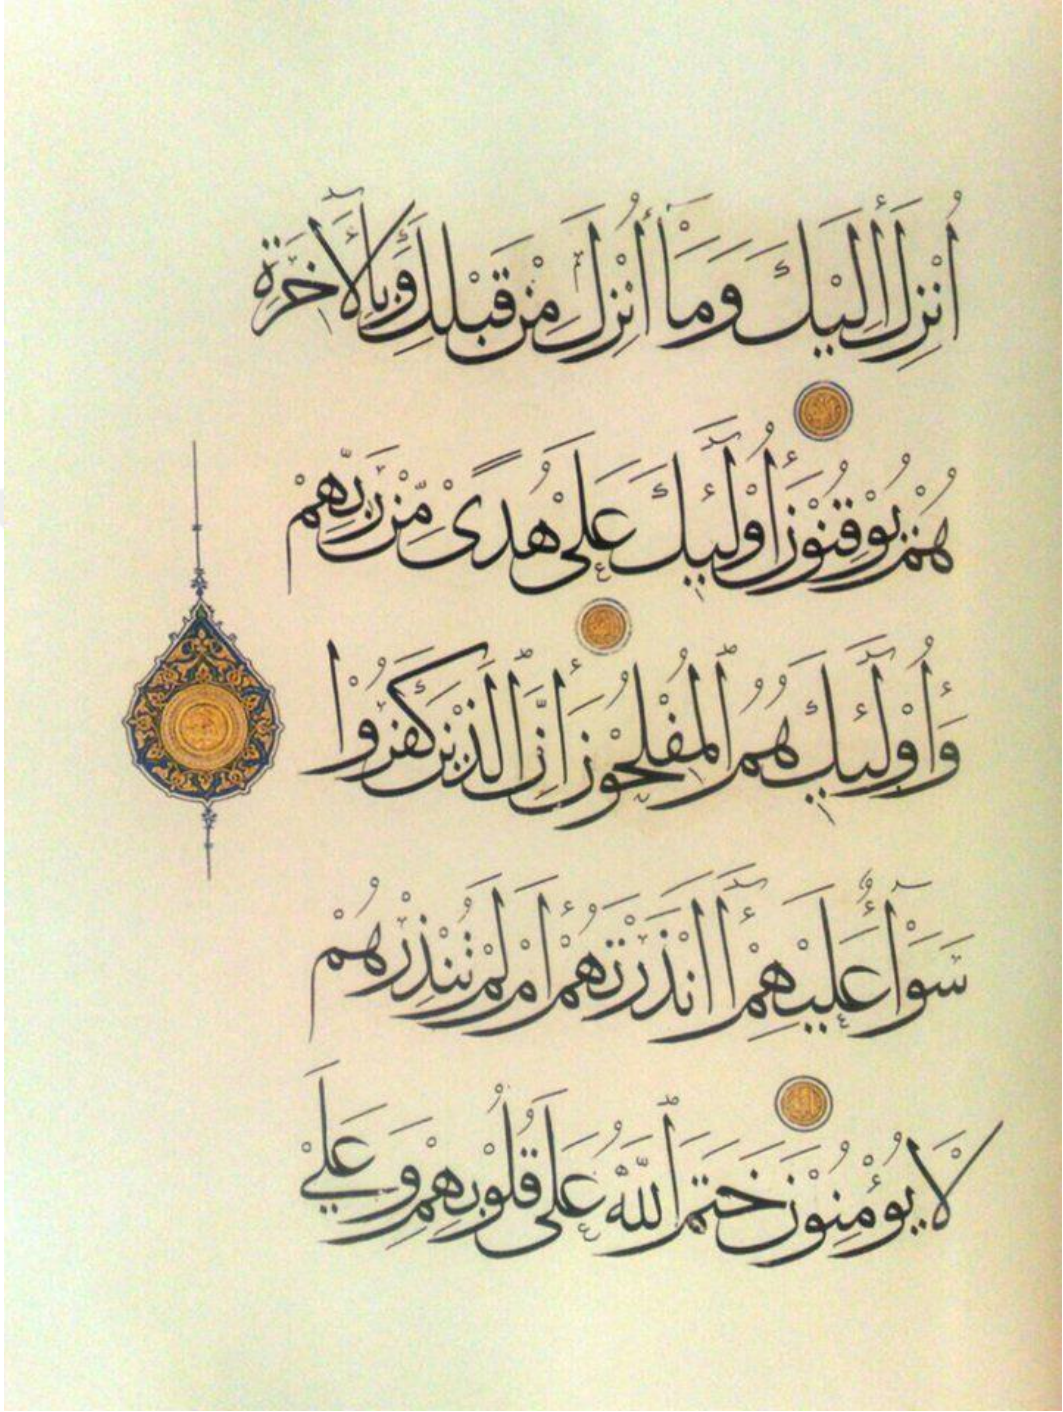 أُنْزِلَ إِلَيْكَ وَمَآ أُنْزِلَ مِنْ قَبْلِكَ وَبِالْآخِرَةِ
هُمْ يُوْقِنُوْنَ أُوْلَٓئِكَ عَلَىْ هُدًىْ مِّنْ رَبِّهِمْ
وَأُوْلَٓئِكَ هُمُ الْمُفْلِحُوْنَ إِنَّ الَّذِيْنَ كَفَرُوْا
سَوَآءٌ عَلَيْهِمْ ءَأَنْذَرْتَهُمْ أَمْ لَمْ تُنْذِرْهُمْ
لَاْ يُؤْمِنُوْنَ خَتَمَ اللَّهُ عَلَى قُلُوْبِهِمْ وَعَلَىْ